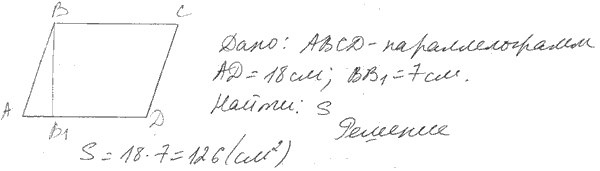 B C
Дано: ABCD - параллелограмм
AD = 18 см; BB₁ = 7 см.
Найти: S
A B₁ D
Решение
S = 18 · 7 = 126 (см²)